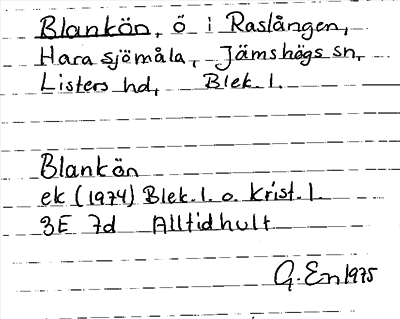 Blankön, ö i Raslången,
Harasjömåla, Jämshögs sn,
Listers hd, Blek. l.
Blankön
ek (1974) Blek. l. o. Krist. l.
3E 7d Alltidhult
G. En 1975